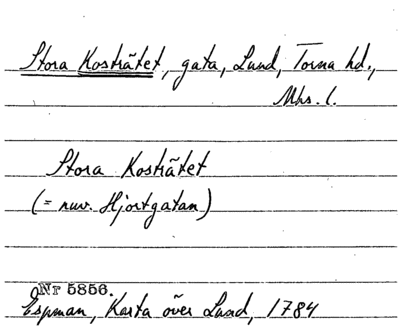 Stora Kosträtet, gata, Lund, Torna hd.,
Mhs. l.
Stora Kosträtet
(= nuv. Hjortgatan)
Nr 5856.
Espman, Karta över Lund, 1784